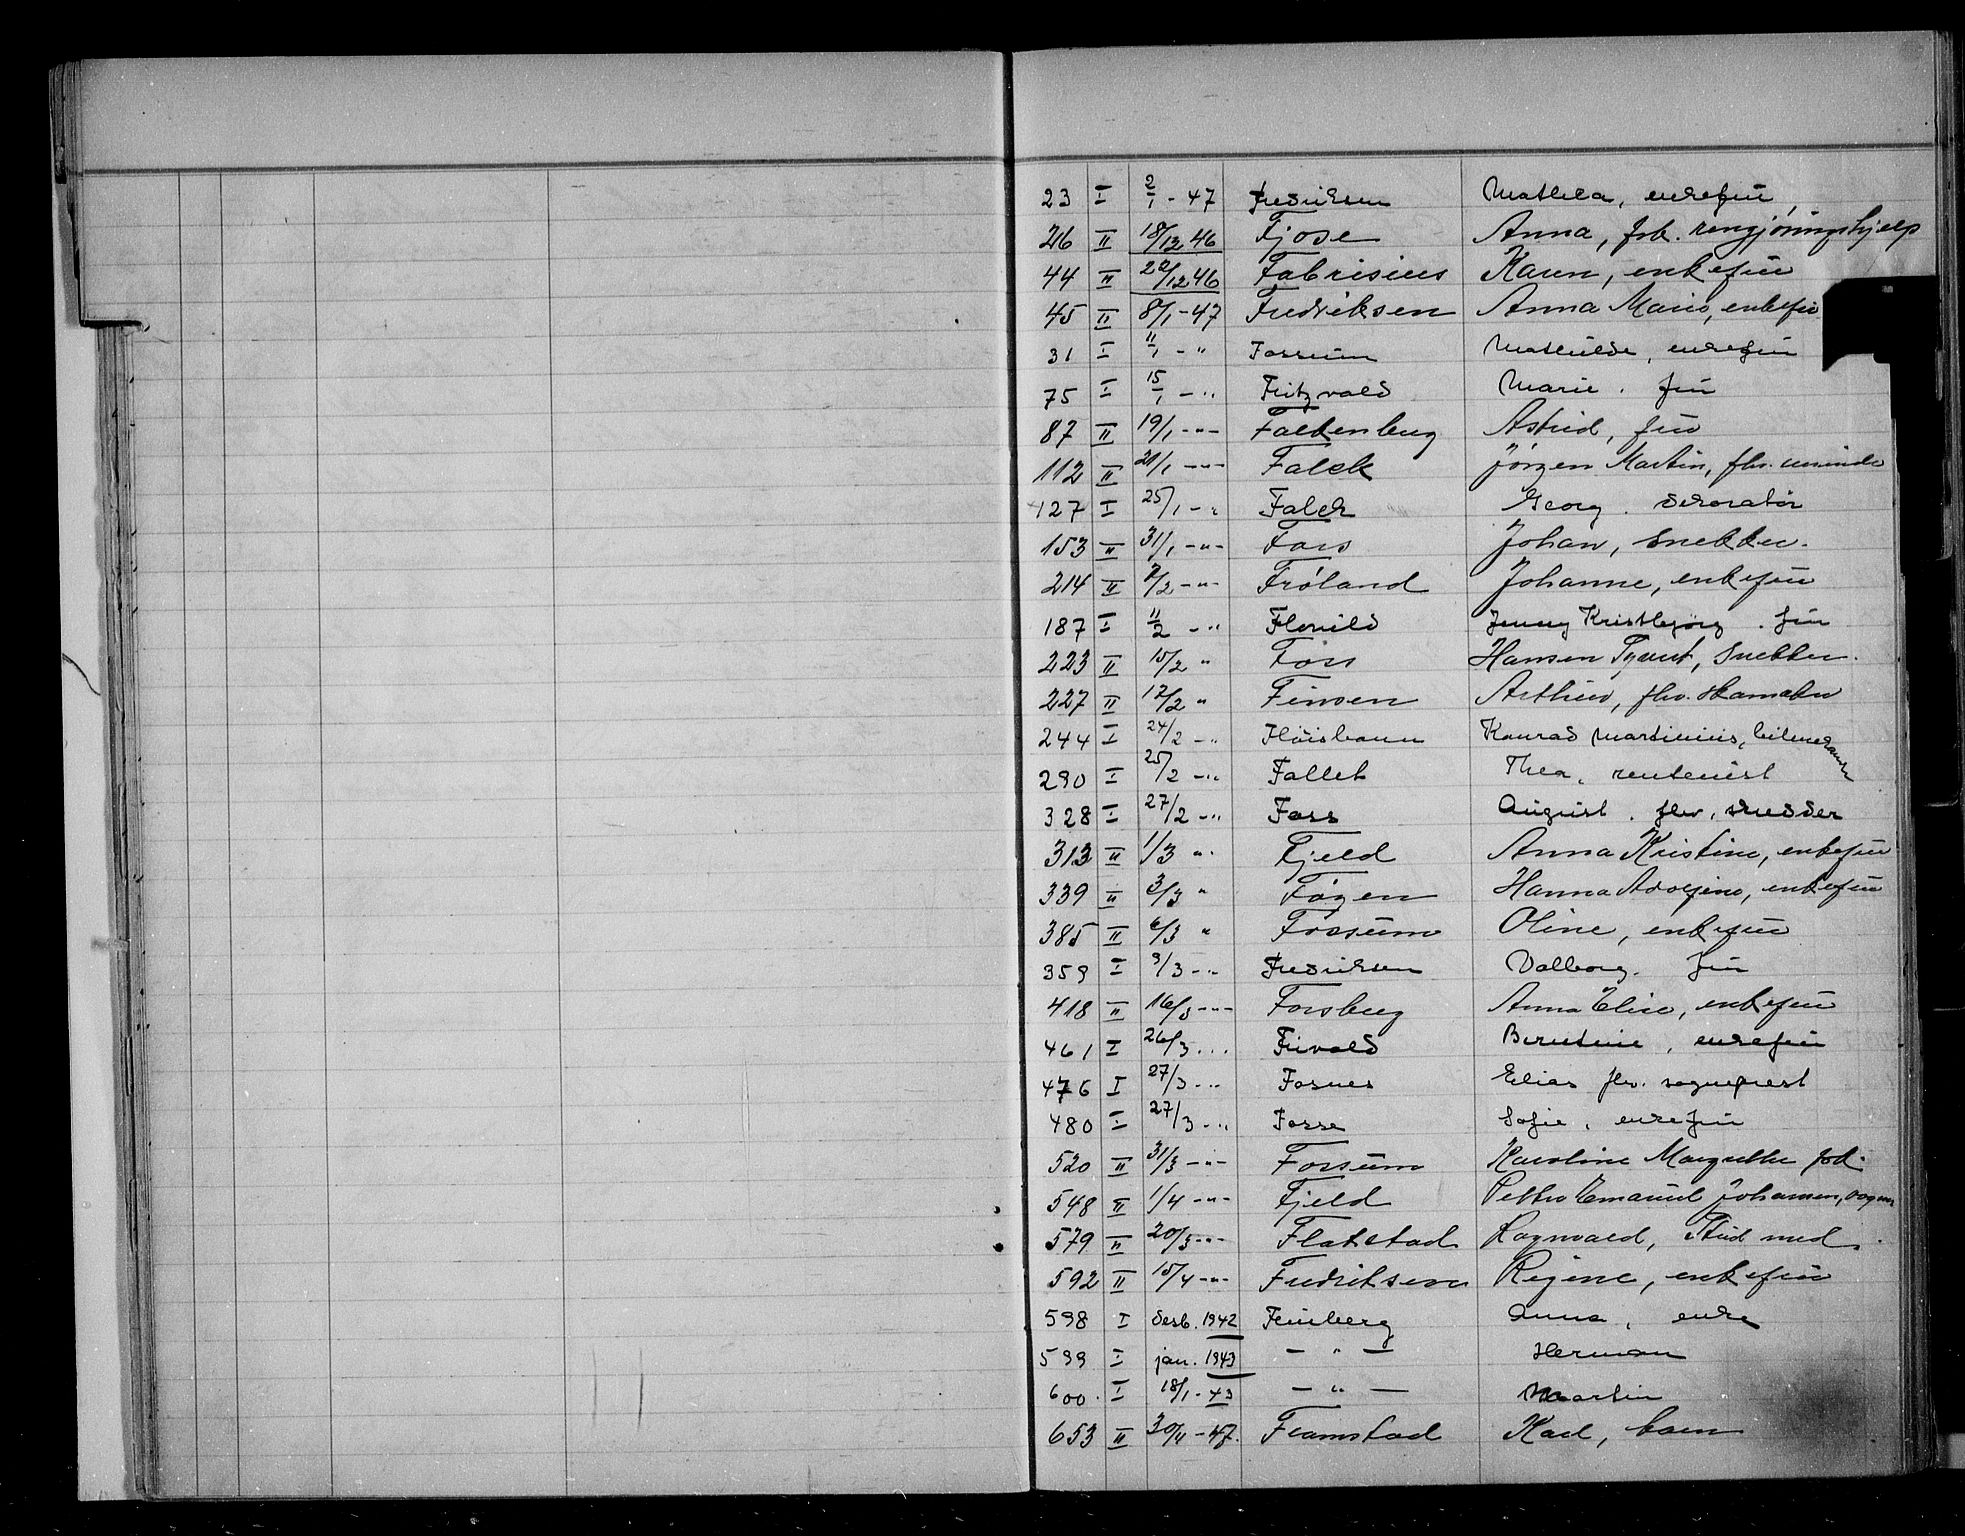 23 I 2/1 - 47 Fredriksen Mathea, enkefru
26 II 18/12 46 Fjose Anna, frk. rengjøringshjelp
44 II 20/12 46 Fabrisius Karen, enkefru
45 II 8/1 - 47 Fredriksen Anna Marie, enkefru
31 I 11/1 - " Fossum Mathilde, enkefru
75 I 15/1 - " Fritzvold Marie. fru
87 II 19/1 - " - Falkenberg Astrid, fru
112 II 21/1 - " - Falck Jörgen Martin, fhv.
127 I 25/1 - " Falck Georg. dekoratör
153 II 31/1 - " - Foss Johan, snekker.
214 II 2/2 - " - Frøland Johanne, enkefru
187 I 11/2 - " Flovild Jenny Kristbjørg. fru
223 II 15/2 " Foss Hansen Tyvert, Snekker.
227 II 17/2 " Finsen Arthur, fhv. skomaker
244 I 24/2 - " Flöisbonn Konrad Martinius,
290 I 25/2 - " Follet Thea, rentenist
328 I 27/2 - " Foss August. fhv. skredder
313 II 1/3 " Fjeld Anna Kristine, enkefru
339 II 3/3 " Føyen Hanna Adolfine, enkefru
385 II 6/3 " Fossum Oline, enkefru
359 I 9/3 - " Fredriksen Valborg. fru
418 II 16/3 - " - Forsberg Anna Elise, enkefru
461 I 26/3 - " Frivold Berntine, enkefru
476 I 27/3 - " Fosnes Elias fhv. sogneprest
480 I 27/3 - " Fosse Sofie, enkefru
520 II 31/3 - " - Fossum Karoline Margrethe frk.
548 II 1/4 - " - Fjeld Petter Emanuel Johansen,
579 II 20/3 - " - Flatstad Ragnvald, Stud med
592 II 15/4 - " - Fredriksen Regine, enkefru
598 I desb. 1942 Feinberg Anna, enke
599 I jan. 1943 - " - Herman
600. I 18/1 - 43 - " - Martin
653 II 30/4 - 47. Framstad Karl, barn